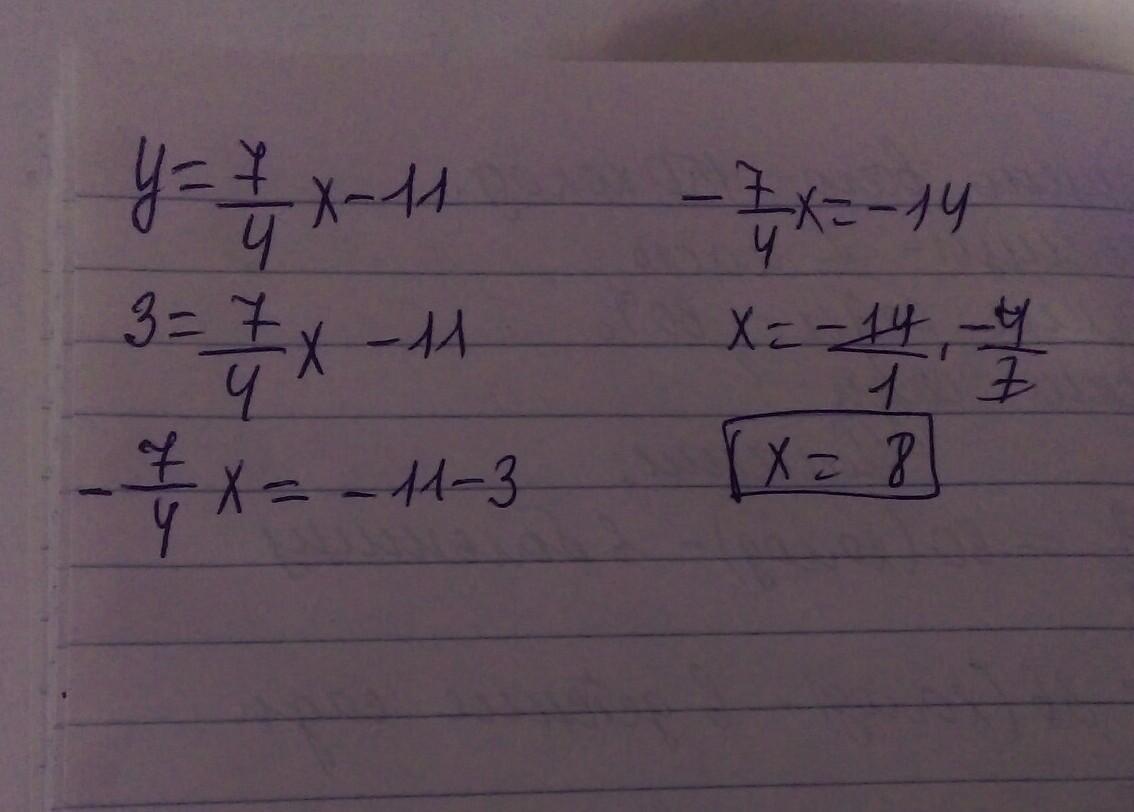 y = 7/4 x - 11
3 = 7/4 x - 11
- 7/4 x = - 11 - 3
- 7/4 x = - 14
x = -14/1 · -4/7
x = 8